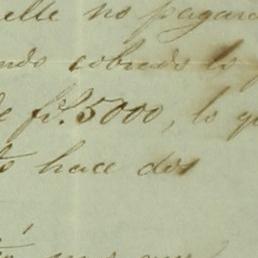 elle no pagara
ndo cobrado lo
de fs. 5000, lo q
to hace dos